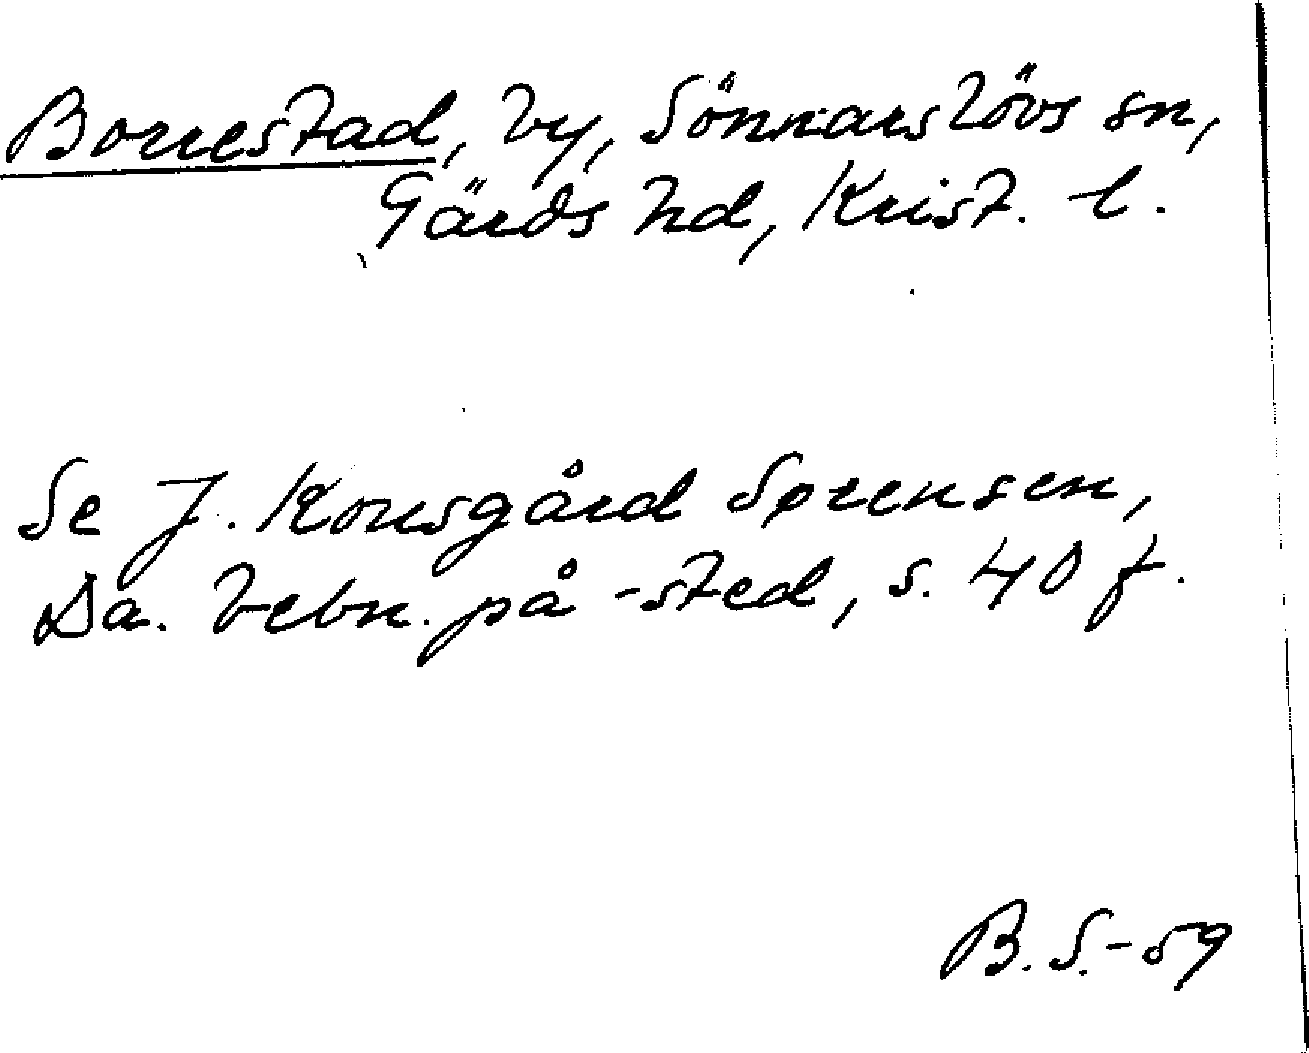 Borrestad, by, Sönnarslövs sn,
Gärds hd, Krist. l.
Se J. Kousgård Sørensen,
Da. bebn. på -sted, s. 40 f.
B.S.-59